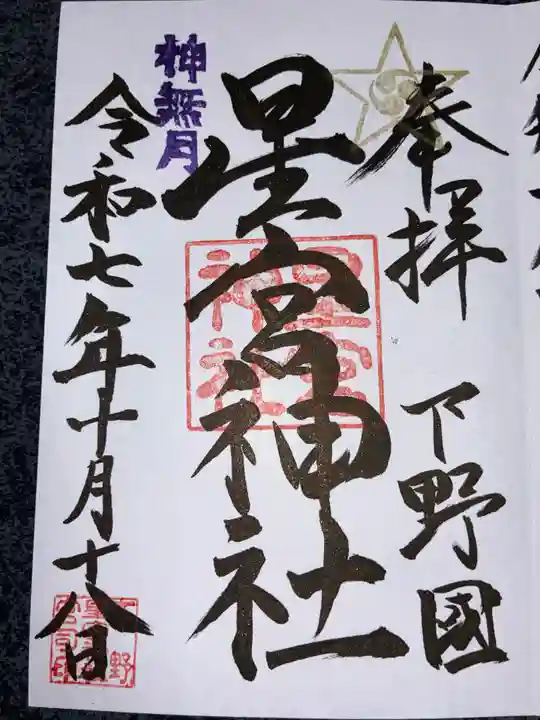 奉拝 下野國
星宮神社
神無月
令和七年十月十八日
星宮神社